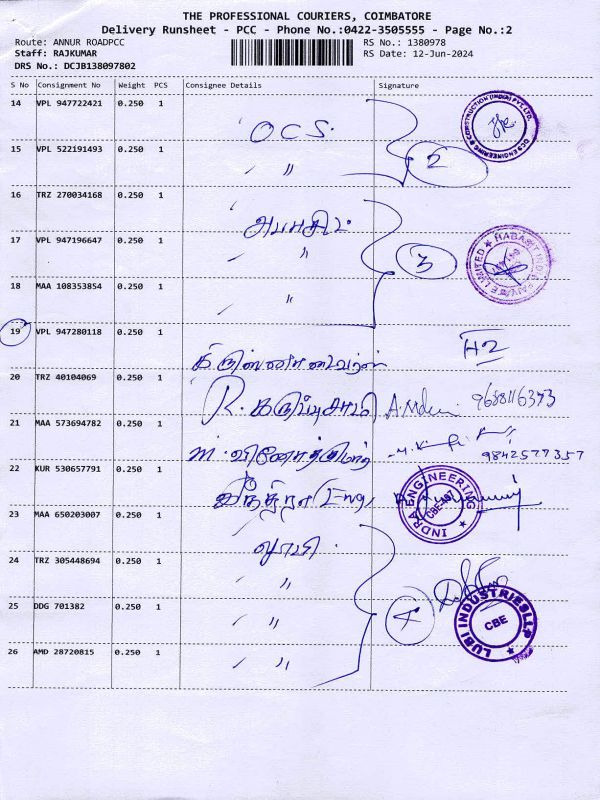 THE PROFESSIONAL COURIERS, COIMBATORE
Delivery Runsheet - PCC - Phone No.:0422-3505555 - Page No.:2
Route: ANNUR ROADPCC RS No.: 1380978
Staff: RAJKUMAR RS Date: 12-Jun-2024
DRS No.: DCJB138097802
S No Consignment No Weight PCS Consignee Details Signature
14 VPL 947722421 0.250 1 OCS
15 VPL 522191493 0.250 1 〃 2
16 TRZ 270034168 0.250 1
17 VPL 947196647 0.250 1 〃 3
18 MAA 108353854 0.250 1 〃
19 VPL 947280118 0.250 1 H2
20 TRZ 40104069 0.250 1 R. கருப்புசாமி
21 MAA 573694782 0.250 1 m. வினோத்குமார் 9842577357
22 KUR 530657791 0.250 1 இந்திரா Eng, INDRA ENGINEERING CBE-
23 MAA 650203007 0.250 1 லூபி
24 TRZ 305448694 0.250 1 〃
25 DDG 701382 0.250 1 〃 4 LUBI INDUSTRIES LLP CBE
26 AMD 28720815 0.250 1 〃